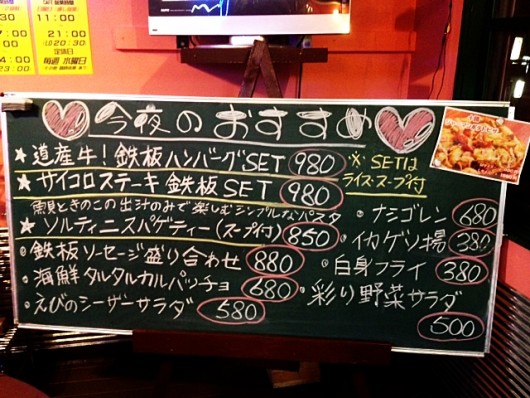 今夜のおすすめ
★道産牛!鉄板ハンバーグSET 980
★サイコロステーキ鉄板SET 980
※SETは
ライス・スープ付
貝ときのこの出汁のみで楽しむシンプルなパスタ
★ソルティーニスパゲティー(スープ付) 850
・鉄板ソーセージ盛り合わせ 880
・海鮮タルタルカルパッチョ 680
・えびのシーザーサラダ 580
・ナシゴレン 680
・イカゲソ揚 380
・白身フライ 380
・彩り野菜サラダ
500
17:00
21:00
(LO 20:30)
定休日
毎週 水曜日